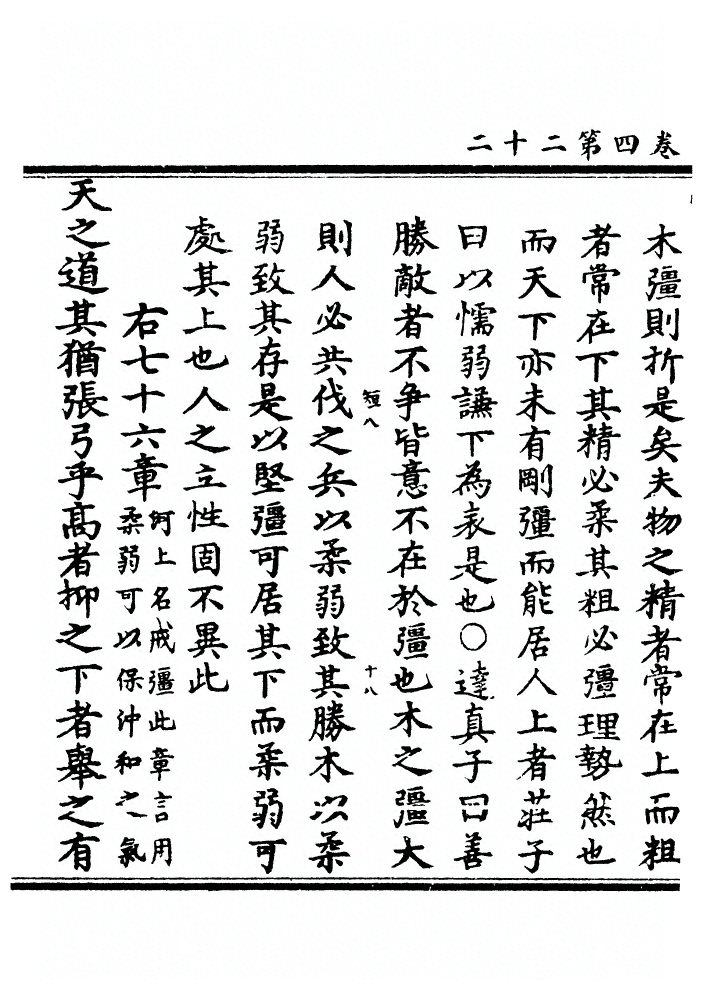 卷四第二十二
木彊則折是矣夫物之精者常在上而粗
者常在下其精必柔其粗必彊理勢然也
而天下亦未有剛彊而能居人上者莊子
曰以懦弱謙下為表是也〇達真子曰善
勝敵者不爭皆意不在於彊也木之彊大
短八
十八
則人必共伐之兵以柔弱致其勝木以柔
弱致其存是以堅彊可居其下而柔弱可
處其上也人之立性固不異此
右七十六章
河上名戒彊此章言用
柔弱可以保沖和之氣
天之道其猶張弓乎高者抑之下者舉之有